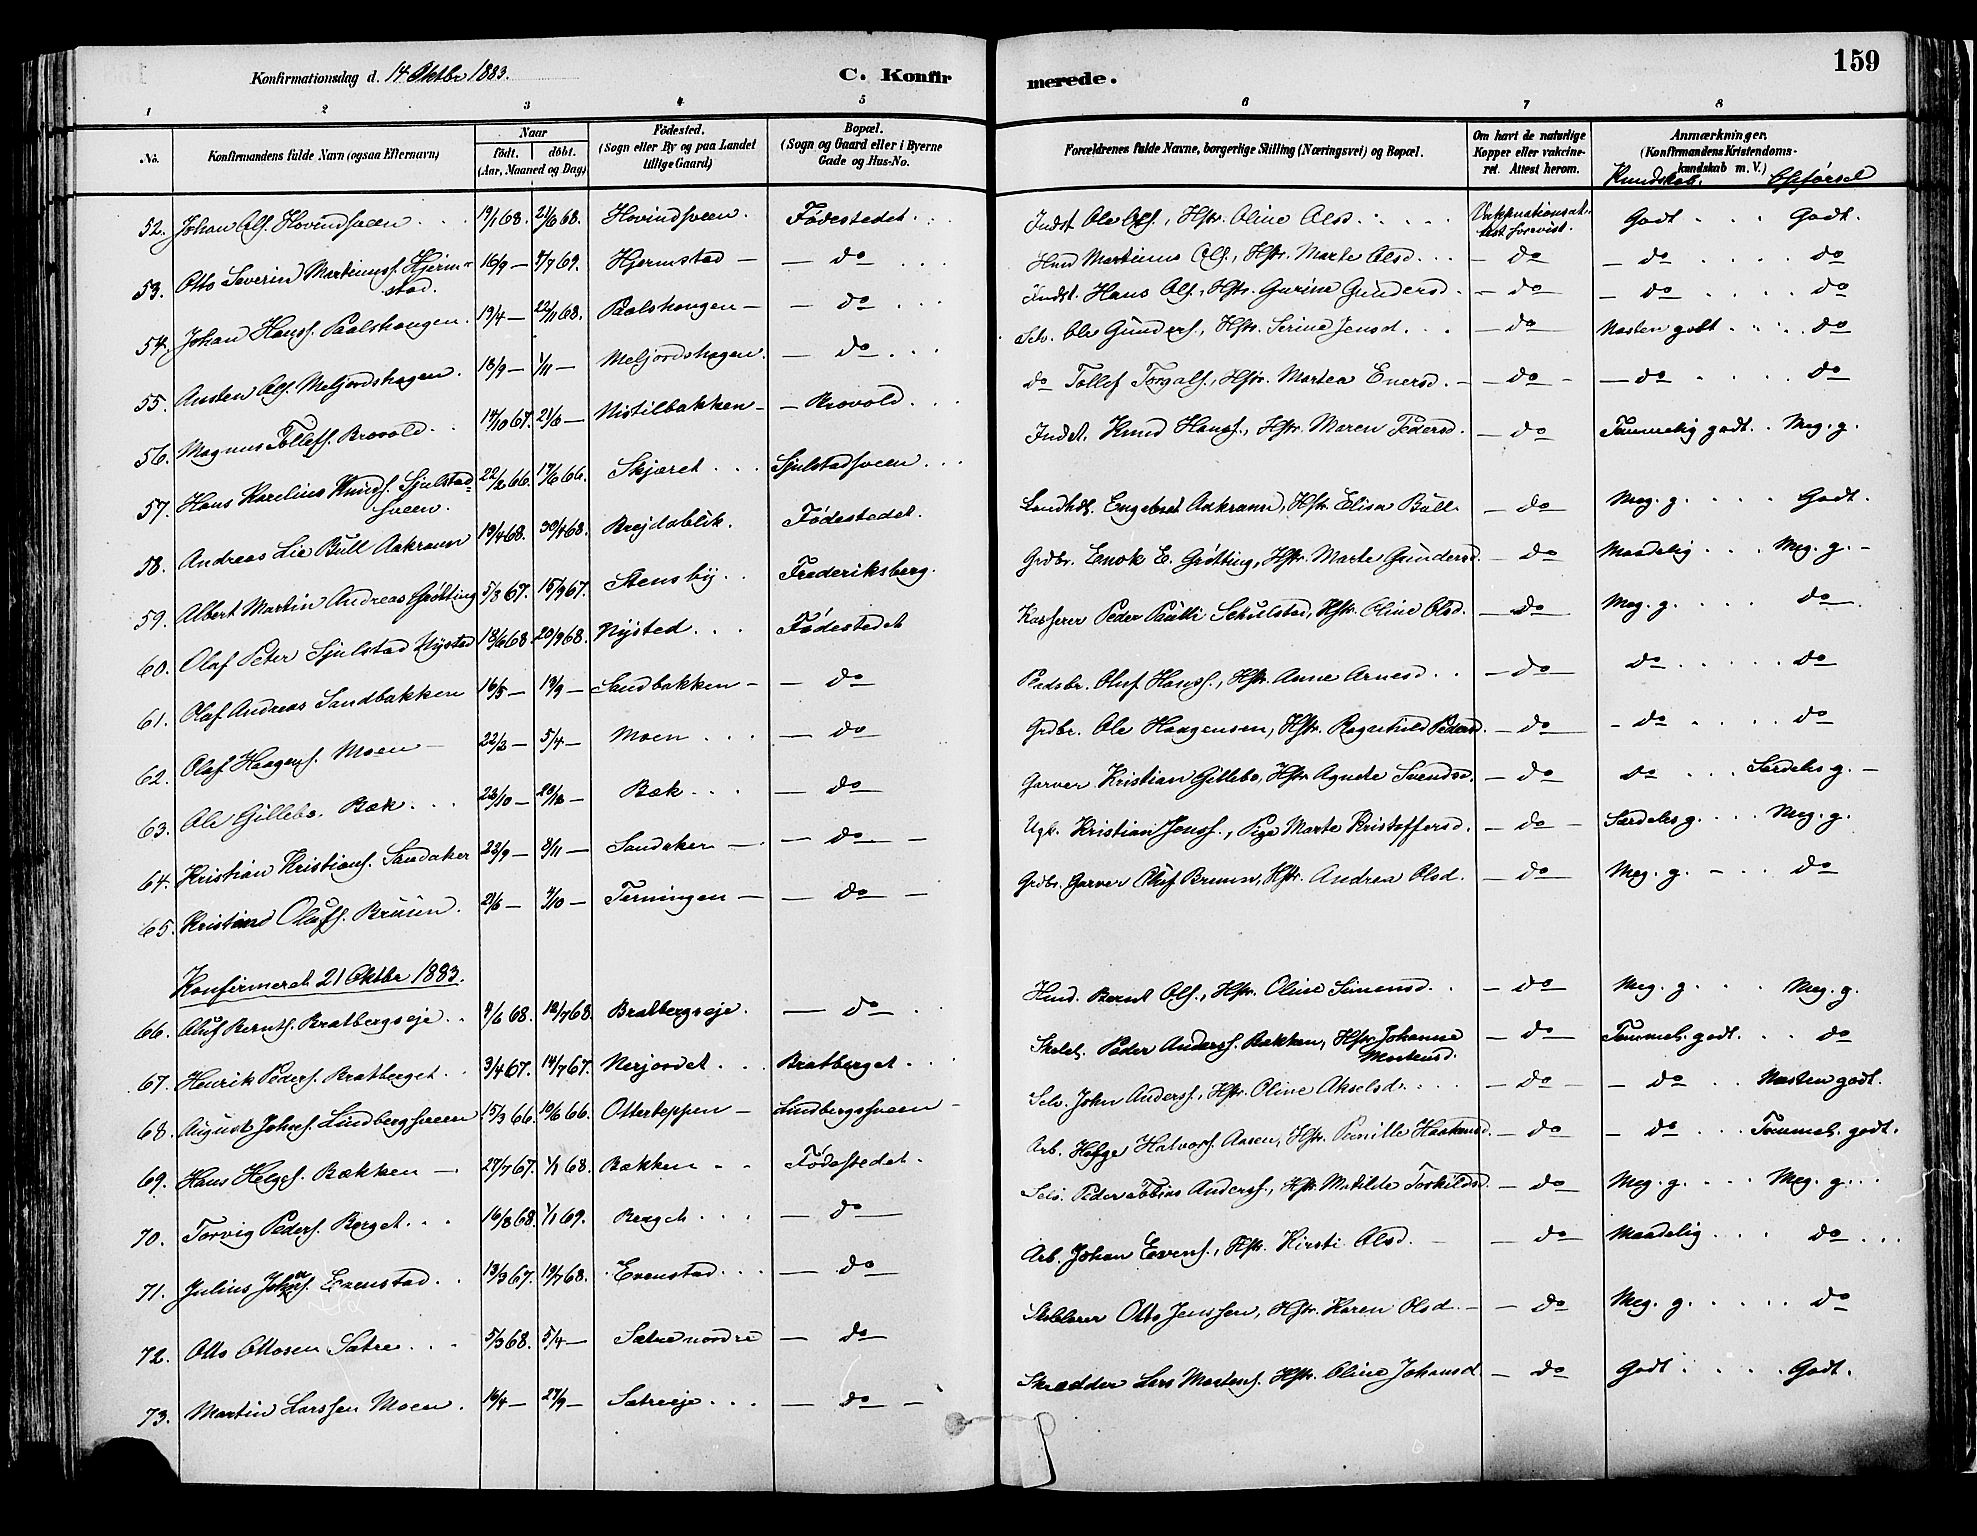 159
Konfirmationsdag d. 14 Oktbr 1883. C. Konfir merede.
1 2 3 4 5 6 7 8
No. Konfirmandens fulde Navn (ogsaa Efternavn) Naar født. døbt. (Aar, Maaned og Dag) Fødested. (Sogn eller By og paa Landet tillige Gaard) Bopæl. (Sogn og Gaard eller i Byerne Gade og Hus-No. Forældrenes fulde Navne, borgerlige Stilling (Næringsvei) og Bopæl. Om havt de naturlige Kopper eller vakcineret. Attest herom. Anmærkninger. (Konfirmandens Kristendomskundskab m. V.) Kundskab. Opførsel
52. Johan Ols. Hovindsveen 19/1 68. 21/6 68. Hovindsveen. Fødestedet. Indst. Ole Ols., Hstr. Oline Olsd. Vakkinationsattest forevist. Godt Godt.
53. Otto Severin Martinuss. Hjermstad. 16/9 — 4/7 69. Hjermstad — — do Hmd Martinus Ols., Hstr. Marte Olsd. — do — do do
54. Johan Hanss. Paalshaugen. 19/4 — 22/11 68. Paalshaugen — — do Indst. Hans Ols., Hstr. Gurine Gundersd. — do — do do
55. Austen Ols. Meljordshagen. 18/9 — 1/11 — Meljordshagen. — do Selv. Ole Gunders., Hstr. Serine Jensd. — do Næsten godt do
56. Magnus Tollefs. Brovold. 14/10 67. 21/6 — Nistilbakken — — Brovold. do Tollef Torgals., Hstr. Martea Enersd. — do — do do
57. Hans Karelius Knuds. Sjulstadsveen. 22/2 66. 17/6 66. Skjæret Sjulstadsveen Indst. Knud Hanss., Hstr. Maren Pedersd. — do Temmelig godt. Meg. g.
58. Andreas Lie Bull Aakrann 19/4 68. 30/4 68. Brejdablik. Fødestedet. Landhdl. Engebret Aakrann, Hstr. Elisa Bull — do Meg. g. Godt.
59. Albert Martin Andreas Grøtting 5/8 67. 15/9 67. Stensby Frederiksberg. Grdbr. Enok E. Grøtting, Hstr. Marte Gundersd. — do Maadelig Meg. g. —
60. Olaf Peter Sjulstad Nysted 18/6 68 20/9 68. Nysted Fødestedet Kasserer Peder Paulli Schulstad, Hstr. Oline Olsd. — do Meg. g. do
61. Olaf Andreas Sandbakken 16/5 — 19/9 — Sandbakken — — do Pladsbr. Oluf Hanss., Hstr. Anne Arnesd — do do do
62. Olaf Haagens. Moen 22/2 — 5/4 — Moen — do Grdbr. Ole Haagensen, Hstr. Ragnhild Pedersd. — do — do do
63. Ole Gillebo. Bæk 23/10 — 20/12 — Bæk — do Garver Kristian Gillebo, Hstr. Agnete Svendsd. — do do Særdeles g. —
64. Kristian Kristians. Sandaker 22/9 — 3/11 — Sandaker — — do — Ugk. Kristian Jenss., Pige Marte Kristoffersd. — do — Særdeles g. Meg. g.
65. Kristian Olufs. Bruun. 21/6 — 4/10 — Terningen — — do — Grdbr. Garver Oluf Bruun, Hstr. Andrea Olsd. — do Meg. g. — do
Konfirmeret 21 Oktbr 1883.
66. Oluf Bernts. Bratbergseje 4/6 68. 12/7 68. Bratbergseje. — do Hmd. Bernt Ols., Hstr. Oline Simensd. — do Meg. g. Meg. g.
67. Henrik Peders. Bratberget. 3/4 67. 14/7 67. Nerjordet Bratberget. Peder Anderss. Bakken, Hstr. Johanne Mortensd. — do Temmel. godt. do
68. August Johns. Lindbergsveen 15/3 66. 10/6 66. Otterteppen — Lindbergsveen — Selv. John Anderss., Hstr. Oline Akselsd. — do — — do Næsten godt.
69. Hans Helges. Bækken — 27/7 67. 1/1 68. Bækken Fødestedet. Arb. Helge Halvors. Aasen, Hstr. Pernille Haakensd. — do — do Temmel. godt.
70. Torvig Peders. Berget. 16/8 68. 1/1 69. Berget — do — Selv. Peder Anderss., Hstr. Matilde Torkildsd. — do Meg. g. Meg. g.
71. Julius Johans. Evenstad. 13/3 67. 19/7 68. Evenstad — do Arb. Johan Evens., Hstr. Kirsti Olsd. — do Maadelig do
72. Otto Ottosen Sætre 5/3 68. 5/4 — Sætre nordre — do Otto Jenssen, Hstr. Karen Olsd. — do Meg. g. do
73. Martin Larssen Moen. 16/4 — 27/9 — Sætreeje — do — Skrædder Lars Mortens. Hstr. Oline Johansd — do Godt Godt.